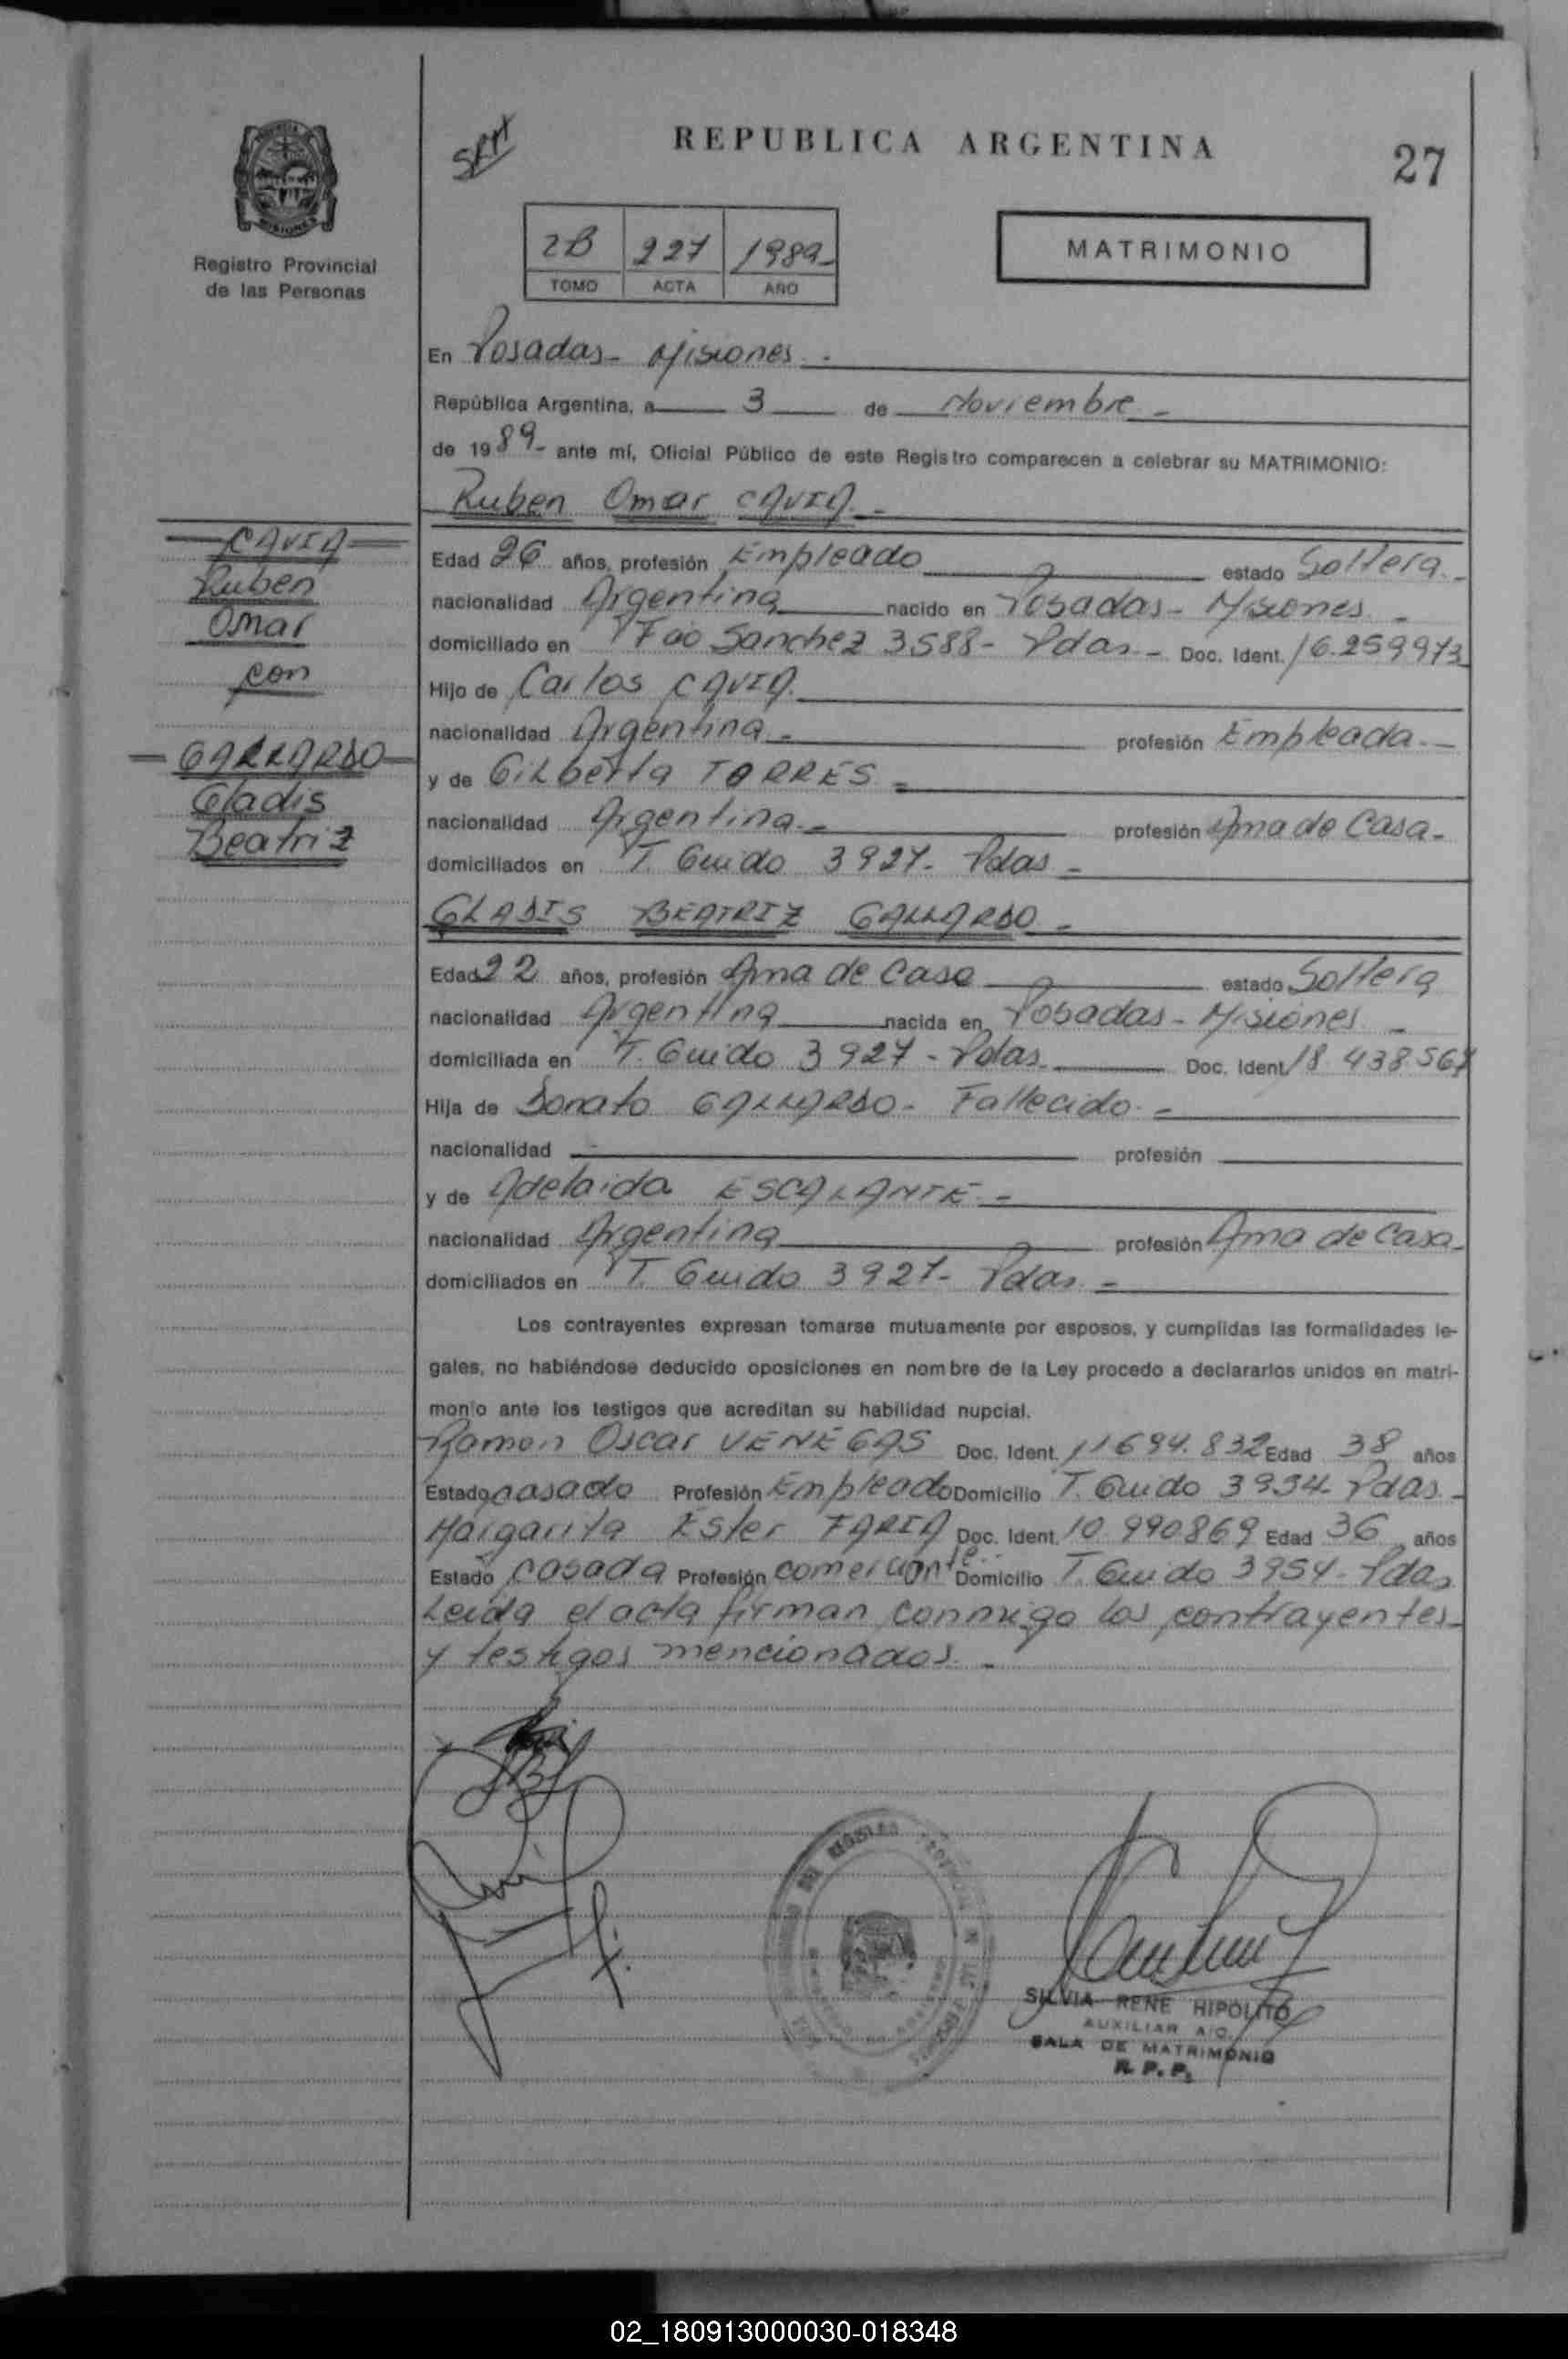 REPUBLICA ARGENTINA
27
Registro Provincial
de las Personas
2B 227 1989-
TOMO ACTA AÑO
MATRIMONIO
En Posadas - Misiones -
República Argentina, a 3 de Noviembre -
de 1989- ante mí, Oficial Público de este Registro comparecen a celebrar su MATRIMONIO:
Ruben Omar CAVIA -
CAVIA
Ruben
Omar
con
GALLARDO
Gladis
Beatriz
Edad 26 años, profesión Empleado estado Soltera -
nacionalidad Argentina nacido en Posadas - Misiones -
domiciliado en Fco Sanchez 3588 - Pdas - Doc. Ident. 16.259973
Hijo de Carlos CAVIA
nacionalidad Argentina - profesión Empleada -
y de Gilberta TORRES -
nacionalidad Argentina - profesión Ama de Casa -
domiciliados en T. Guido 3927 - Pdas -
GLADIS BEATRIZ GALLARDO -
Edad 22 años, profesión Ama de Casa estado Soltera
nacionalidad Argentina nacida en Posadas - Misiones -
domiciliada en T. Guido 3927 - Pdas Doc. Ident. 18 438.567
Hija de Donato GALLARDO - Fallecido -
nacionalidad profesión
y de Adelaida ESCALANTE -
nacionalidad Argentina profesión Ama de Casa -
domiciliados en T. Guido 3927 - Pdas -
Los contrayentes expresan tomarse mutuamente por esposos, y cumplidas las formalidades le-
gales, no habiéndose deducido oposiciones en nombre de la Ley procedo a declararlos unidos en matri-
monio ante los testigos que acreditan su habilidad nupcial.
Ramon Oscar VENEGAS Doc. Ident. 11694.832 Edad 38 años
Estado casado Profesión Empleado Domicilio T. Guido 3934 - Pdas -
Margarita Ester FARIA Doc. Ident. 10.990869 Edad 36 años
Estado casada Profesión comerciante Domicilio T. Guido 3954 - Pdas
Leida el acta firman conmigo los contrayentes
y testigos mencionados -
SILVIA RENE HIPOLITO
AUXILIAR A/C.
SALA DE MATRIMONIO
R. P. P.
02_180913000030-018348